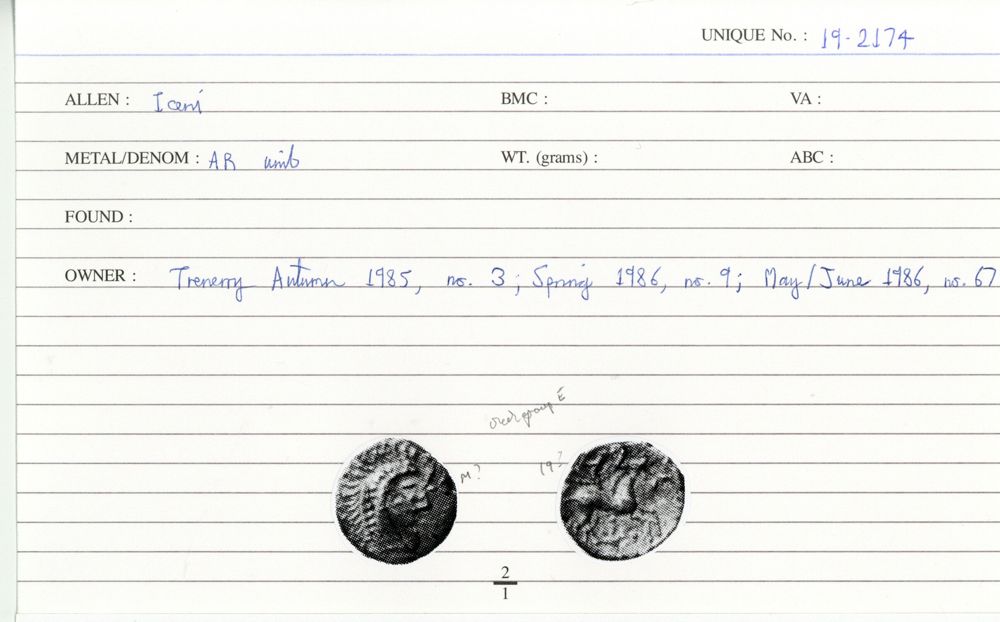 UNIQUE No. : 19-2174
ALLEN : Iceni BMC : VA :
METAL/DENOM : AR unit WT. (grams) : ABC :
FOUND :
OWNER : Trenerry Autumn 1985, no. 3; Spring 1986, no. 9; May/June 1986, no. 67
group E
M? 19?
2
1